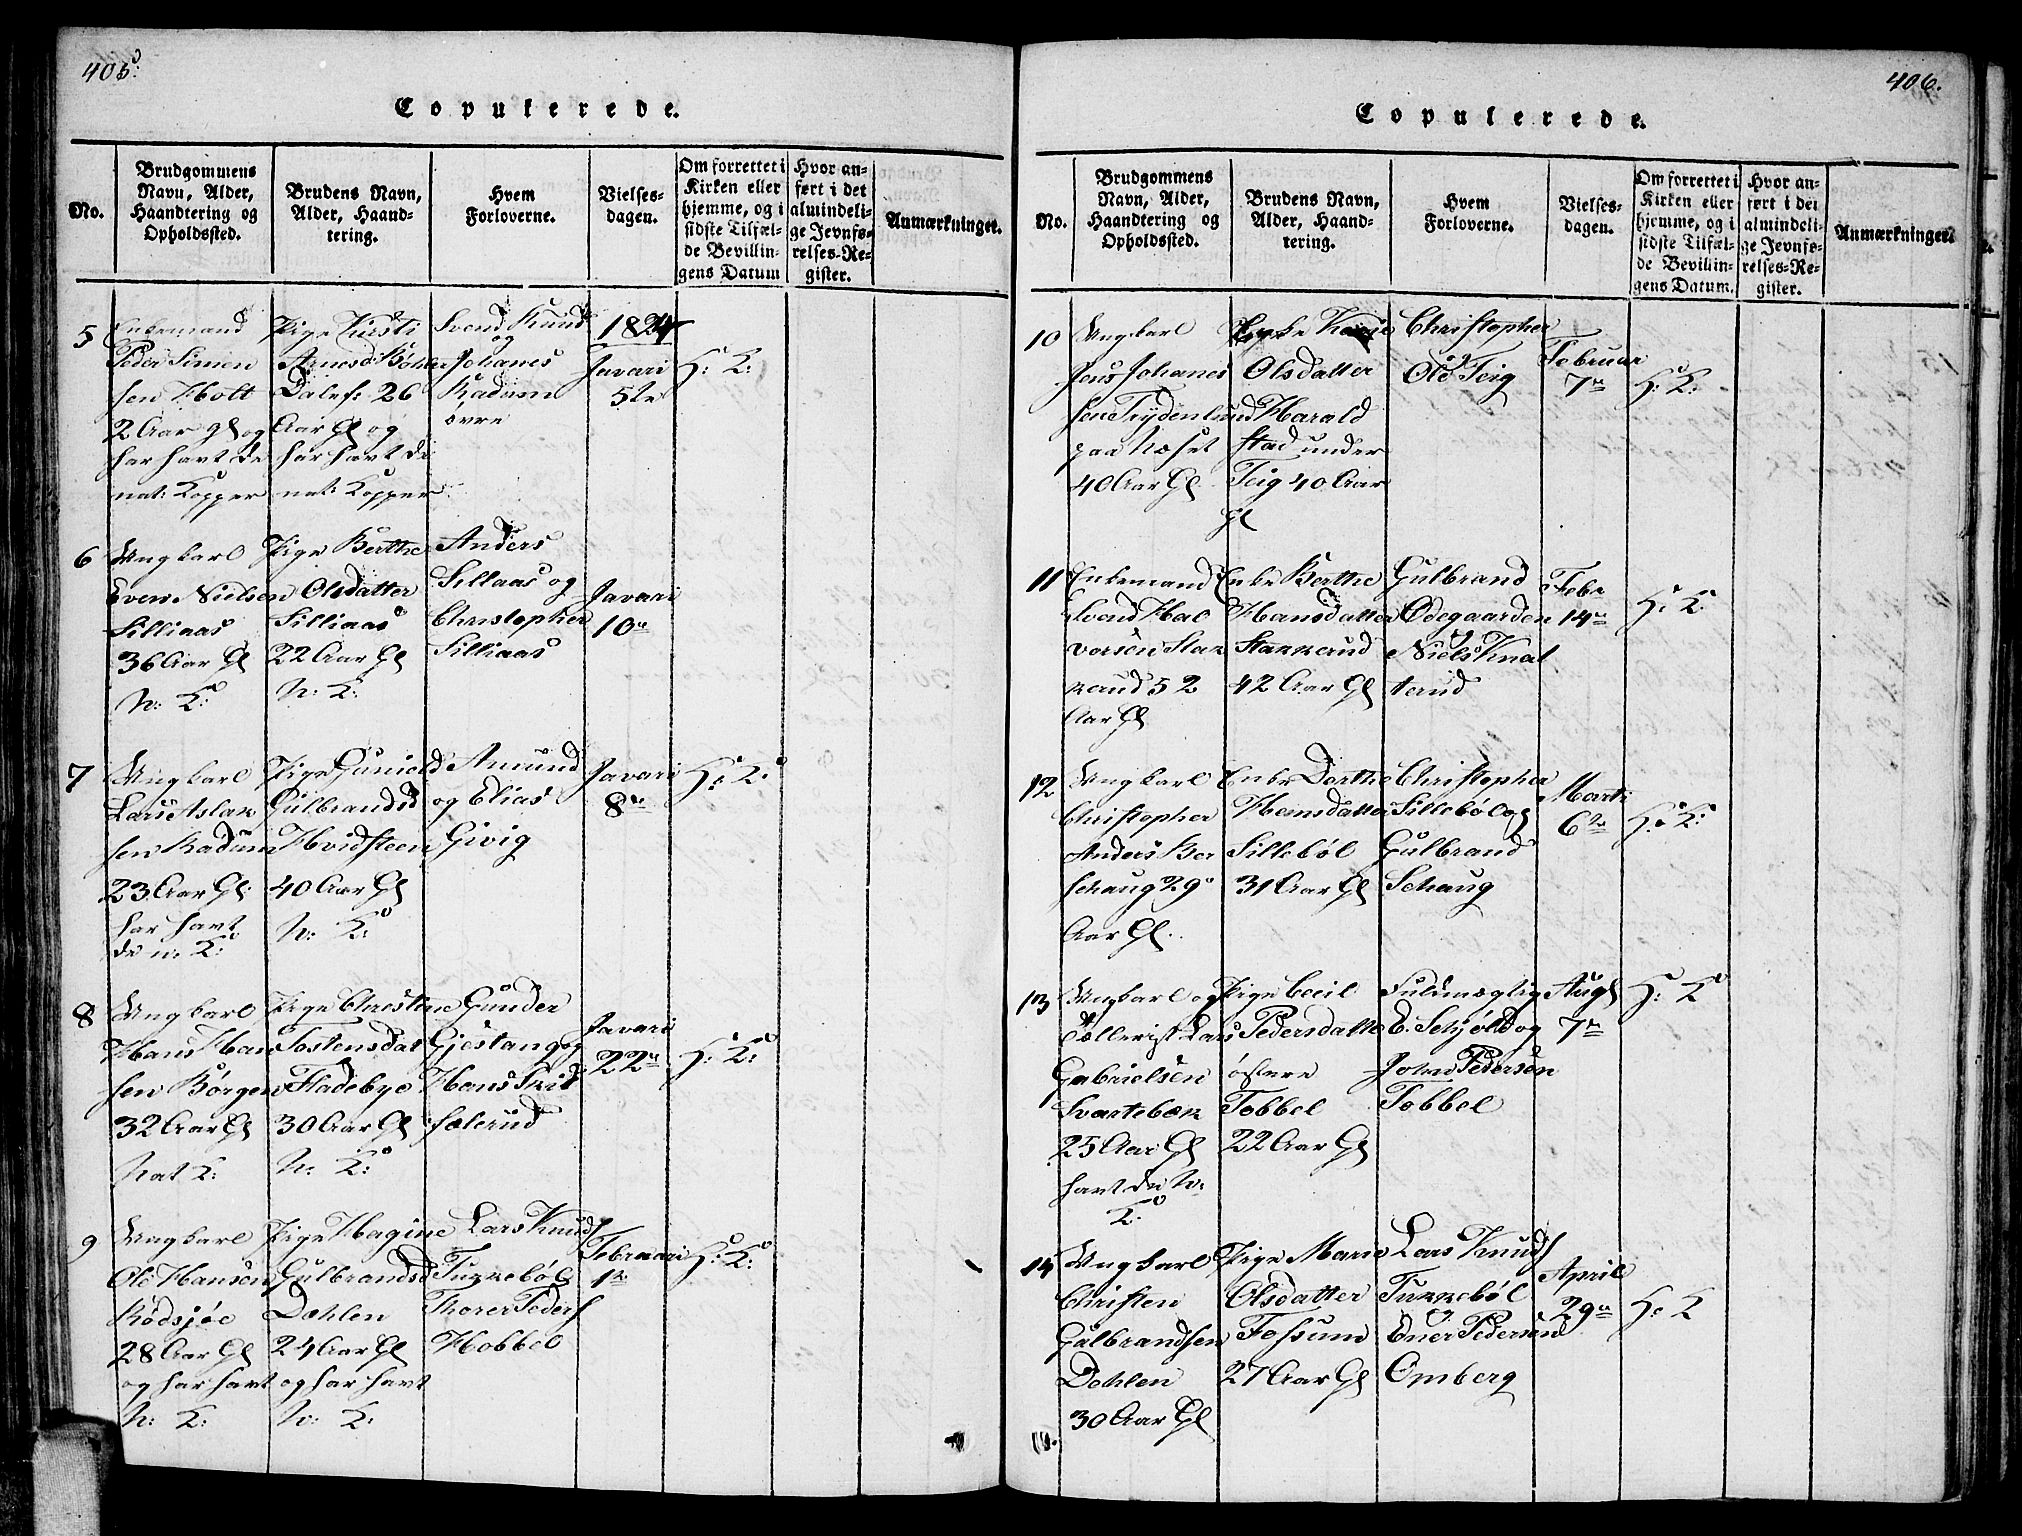 405
Copulerede.
No.
Brudgommens
Navn, Alder,
Haandtering og
Opholdssted.
Brudens Navn,
Alder, Haand-
tering.
Hvem
Forloverne.
Vielses-
dagen.
Om forrettet i
Kirken eller
hjemme, og i
sidste Tilfæl-
de Bevillin-
gens Datum
Hvor an-
ført i det
almindeli-
ge Jevnfø-
relses-Re-
gister.
Anmærkninger.
5
Enkemand
Peder Simen
sen Holt
2 Aar gl og
har havt de
nat: Kopper
Pige Kirsti
Arnesd: Böhler
Dalef: 26
Aar Gl og
har havt de
nat: Kopper
Svend Knud
og
Johanes
Kadum
övre
1824
Javari
5te
H: K:
6
Ungkarl
Even Nielsen
Silliaas
36 Aar Gl
N: K:
Pige Berthe
Olsdatter
Silliaas
22 Aar Gl
N: K:
Anders
Sillaas og
Christopher
Silliaas
Javari
10
7
Ungkarl
Lars Aslak
sen Kadum
23 Aar Gl:
har havt
de n: K:
Pige Guniel
Gulbrandsd
Hvidsteen
40 Aar Gl
N: K:
Amund
og Elias
Givig
Javari
8
H: K:
8
Ungkarl
Hans Han
sen Börgen
32 Aar Gl
Nat K:
Pige Christine
Tostensdat
Fladebye
30 Aar Gl
N: K:
Gunder
Gjestang og
Hans Krid
fælerud
Javari
22
H: K:
9
Ungkarl
Ole Hansen
Rödsjöe
28 Aar Gl
og har havt
N: K:
Pige Hagine
Gulbrandsd
Dæhlen
24 Aar Gl
og har havt
N: K:
Lars Knuds
Tukkeböl
Thorer Peders
Hobbel
Februari
1
H: K:
406.
Copulerede.
No.
Brudgommens
Navn, Alder,
Haandtering og
Opholdssted.
Brudens Navn,
Alder, Haand-
tering.
Hvem
Forloverne.
Vielses-
dagen.
Om forrettet i
Kirken eller
hjemme, og i
sidste Tilfæl-
de Bevillin-
gens Datum.
Hvor an-
ført i det
almindeli-
ge Jevnfø-
relses-Re-
gister.
Anmærkninger.
10
Ungkarl
Jens Johanes
sen Trydenlund
paa Næset
40 Aar Gl
Olsdatter
Harald
stad under
Teig 40 Aar
Gl
Christopher
Ole Teig
Februar
7
H: K:
11
Enkemand
Svend Hal
vorsen Stak
kerud 52
Aar Gl
Enke Berthe
Hansdatter
Stakkerud
42 Aar Gl
Gulbrand
Ödegaarden
og
Niels Knat
terud
Febr
14
H: K:
12
Ungkarl
Christopher
Anders Ber
Schaug 29
Aar Gl.
Enke Dorthe
Hansdatter
Silleböl
31 Aar Gl
Christopher
Silleböl og
Gulbrand
Schaug
Marti
6
H: K:
13
Ungkarl og
Lars
Gabrielsen
Svartebæk
25 Aar Gl
havt de N:
K:
Pige Cecil
Pedersdatte
östere
Tobbel
22 Aar Gl
Fuldmægtig
E. Schjöld og
John Pedersen
Tobbel
Augs
7
H: K:
14
Ungkarl
Christen
Gulbrandsen
Dehlen
30 Aar Gl
Pige Marie
Olsdatter
Fossum
27 Aar Gl
Lars Knuds
Tukkeböl
og
Ener Pedersen
Omberg
April
29
H: K